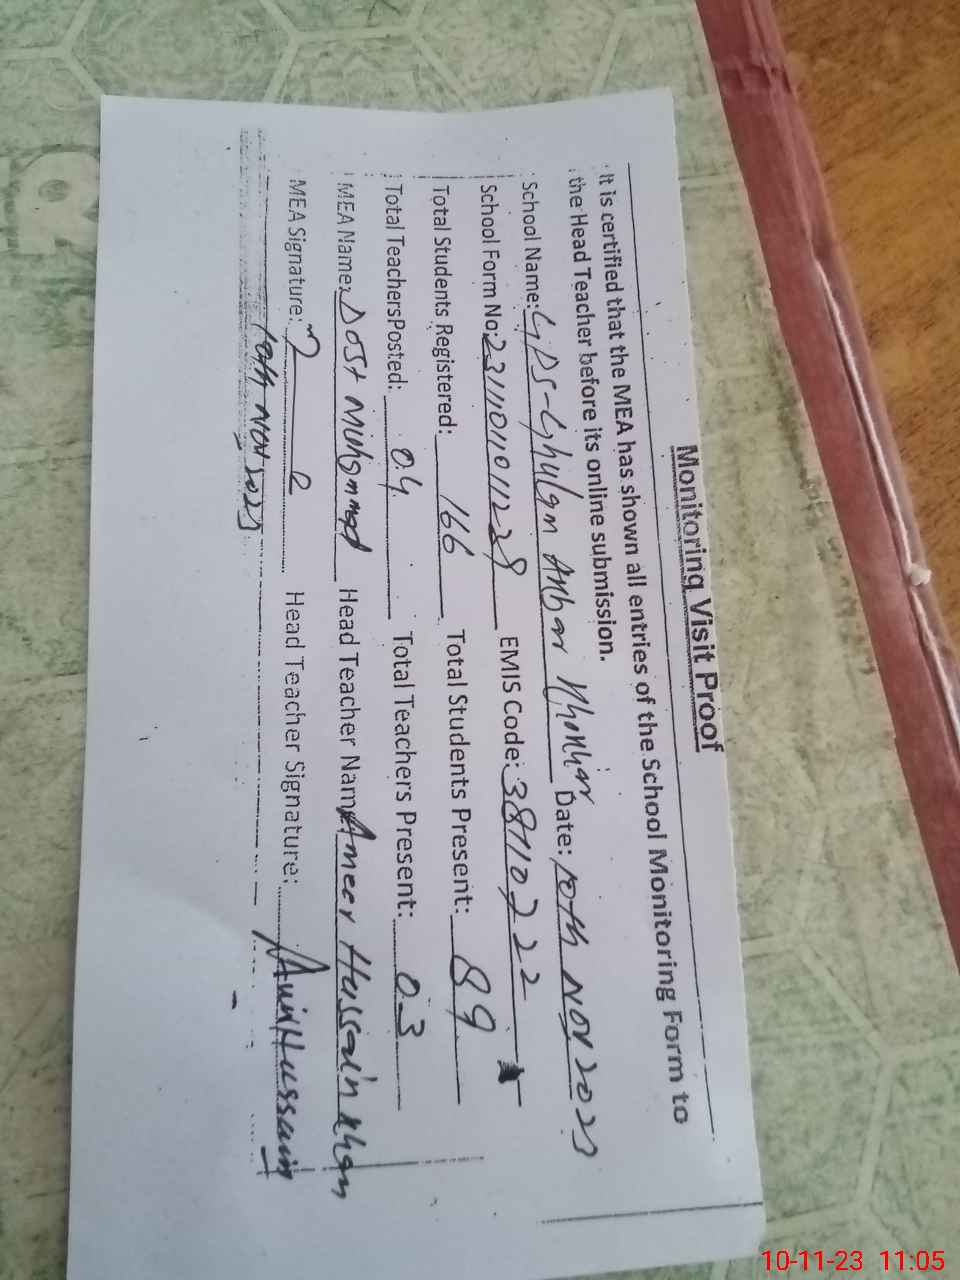 Monitoring Visit Proof
It is certified that the MEA has shown all entries of the School Monitoring Form to
the Head Teacher before its online submission.
School Name: GPS-Ghulam Akbar Khokhar Date: 10th Nov 2023
School Form No: EMIS Code:
Total Students Registered: 166 Total Students Present: 89
Total TeachersPosted: 04 Total Teachers Present: 03
MEA Name: Dost Muhammad Head Teacher Name Ameer Hussain Khan
MEA Signature: Head Teacher Signature: Amir Hussain
10th Nov 2023
10-11-23 11:05